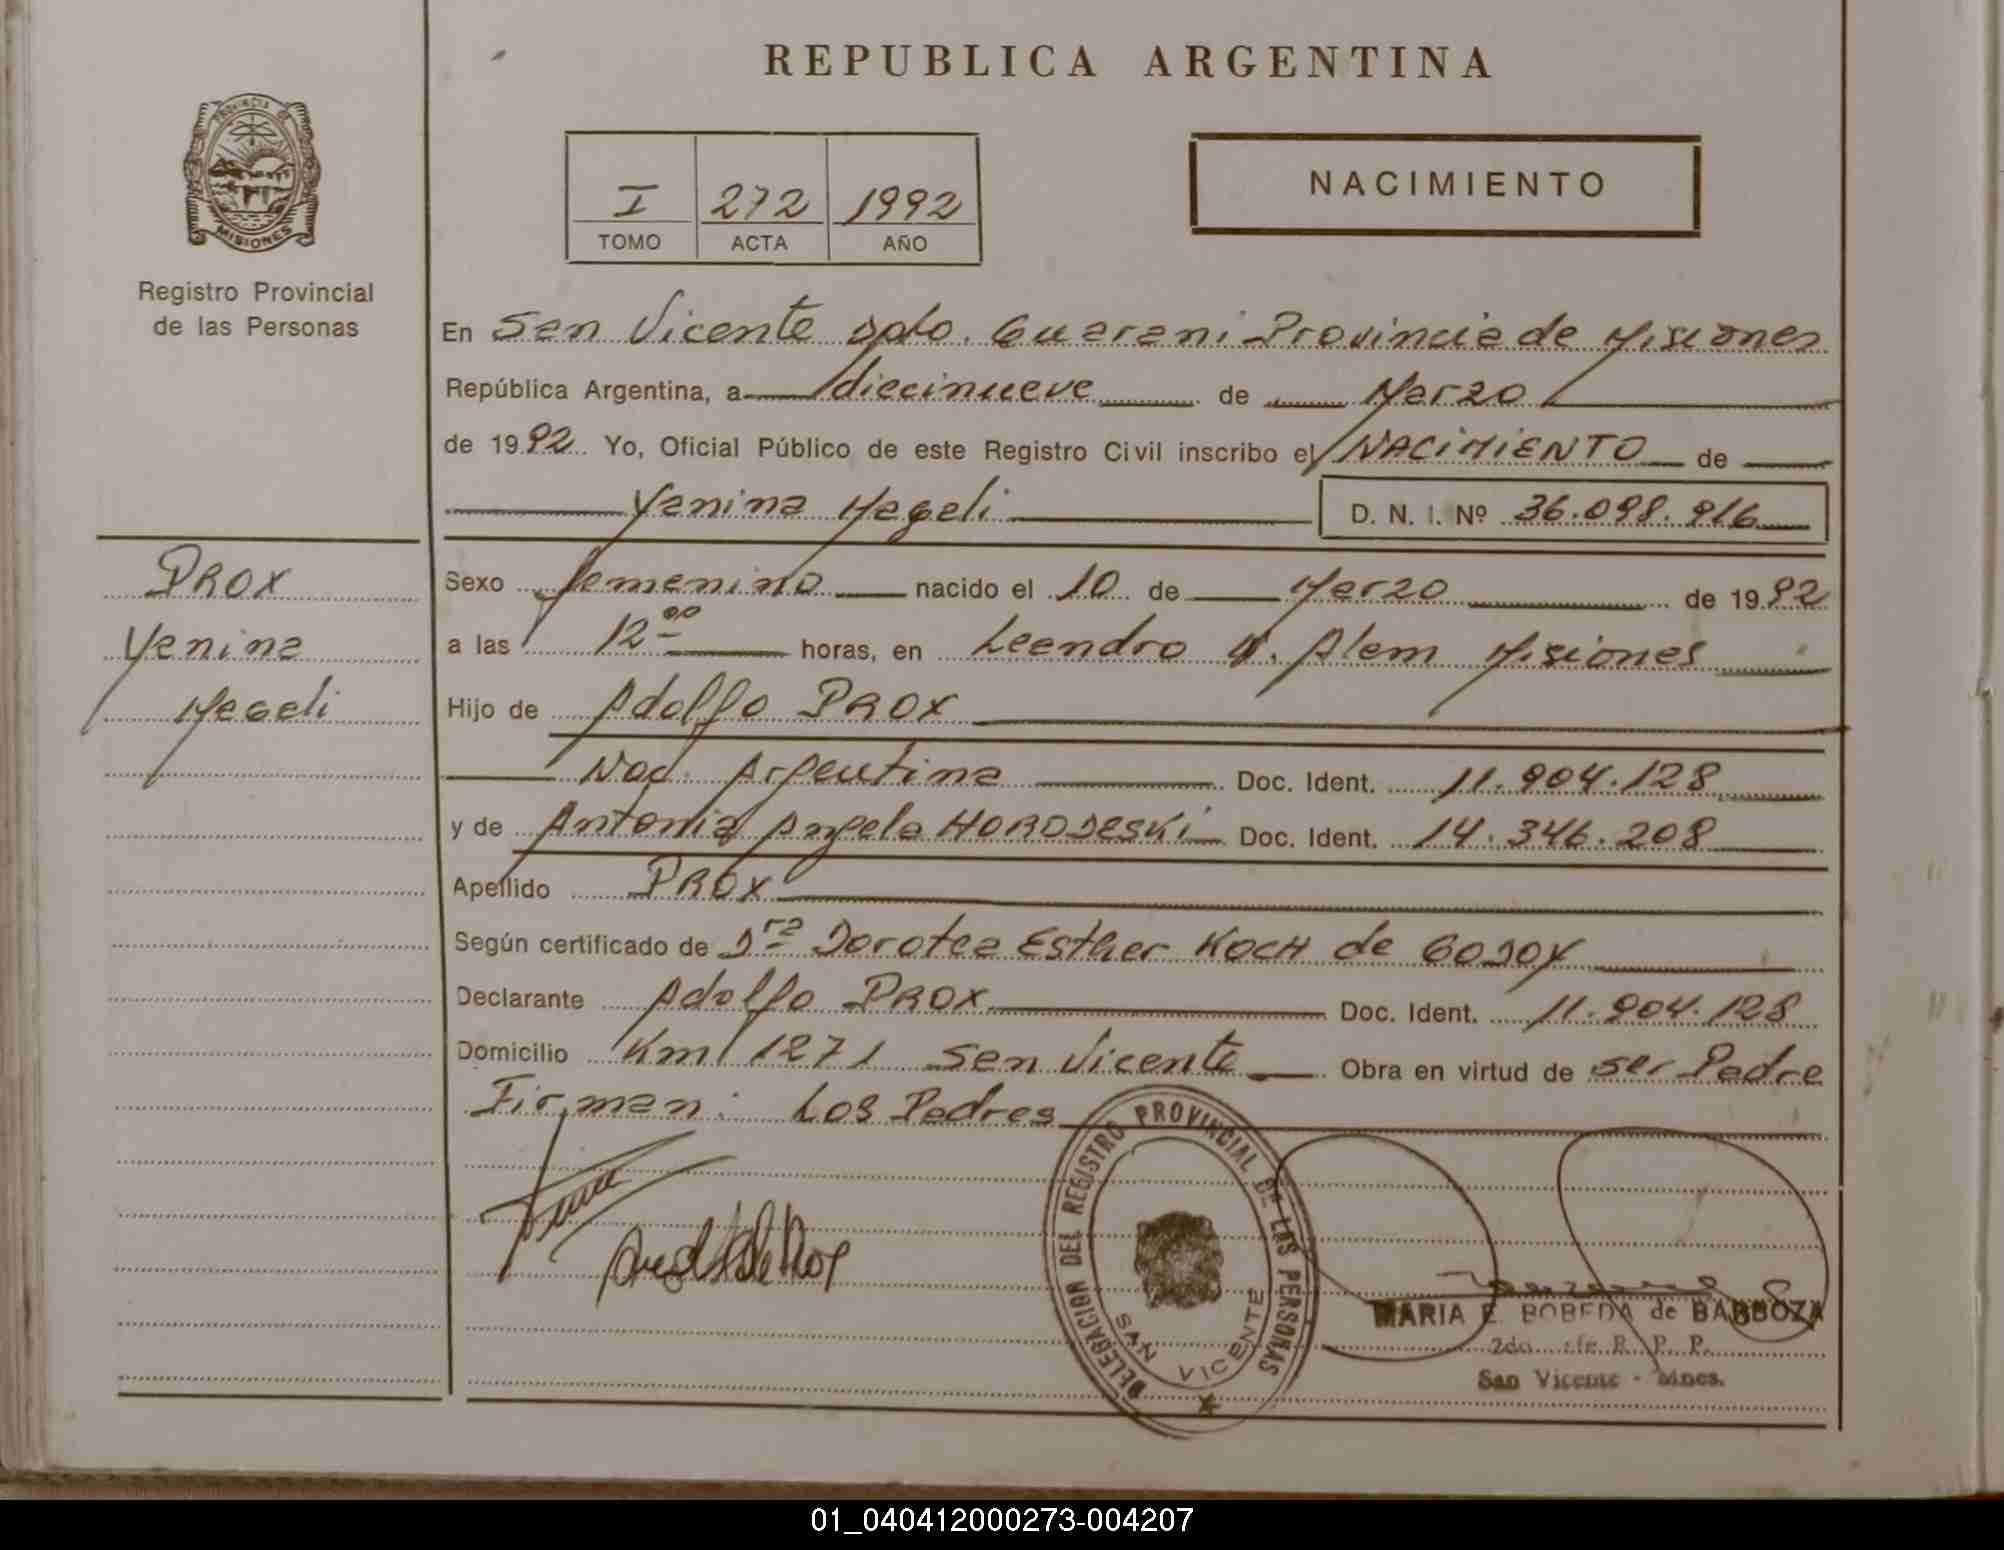 REPUBLICA ARGENTINA
PROVINCIA DE
MISIONES
Registro Provincial
de las Personas
I 272 1992
TOMO ACTA AÑO
NACIMIENTO
En San Vicente Dpto. Guarani Provincia de Misiones
República Argentina, a diecinueve de Marzo
de 1992 Yo, Oficial Público de este Registro Civil inscribo el NACIMIENTO de
Yanina Mageli D. N. I. Nº 36.098.916
PROX
Yanina
Mageli
Sexo femenino nacido el 10 de Marzo de 1992
a las 12 00 horas, en Leandro N. Alem Misiones
Hijo de Adolfo PROX
Nac. Argentina Doc. Ident. 11.904.128
y de Antonia Angela HORODESKI Doc. Ident. 14.346.208
Apellido PROX
Según certificado de Dra Dorotea Esther KOCH de GODOY
Declarante Adolfo PROX Doc. Ident. 11.904.128
Domicilio Km 1271 San Vicente Obra en virtud de ser Padre
Firman: Los Padres
DELEGACION DEL REGISTRO PROVINCIAL DE LAS PERSONAS
SAN VICENTE
MARIA E. BOBEDA de BARBOZA
2do. Jfe R. P. P.
San Vicente - Mnes.
01_040412000273-004207